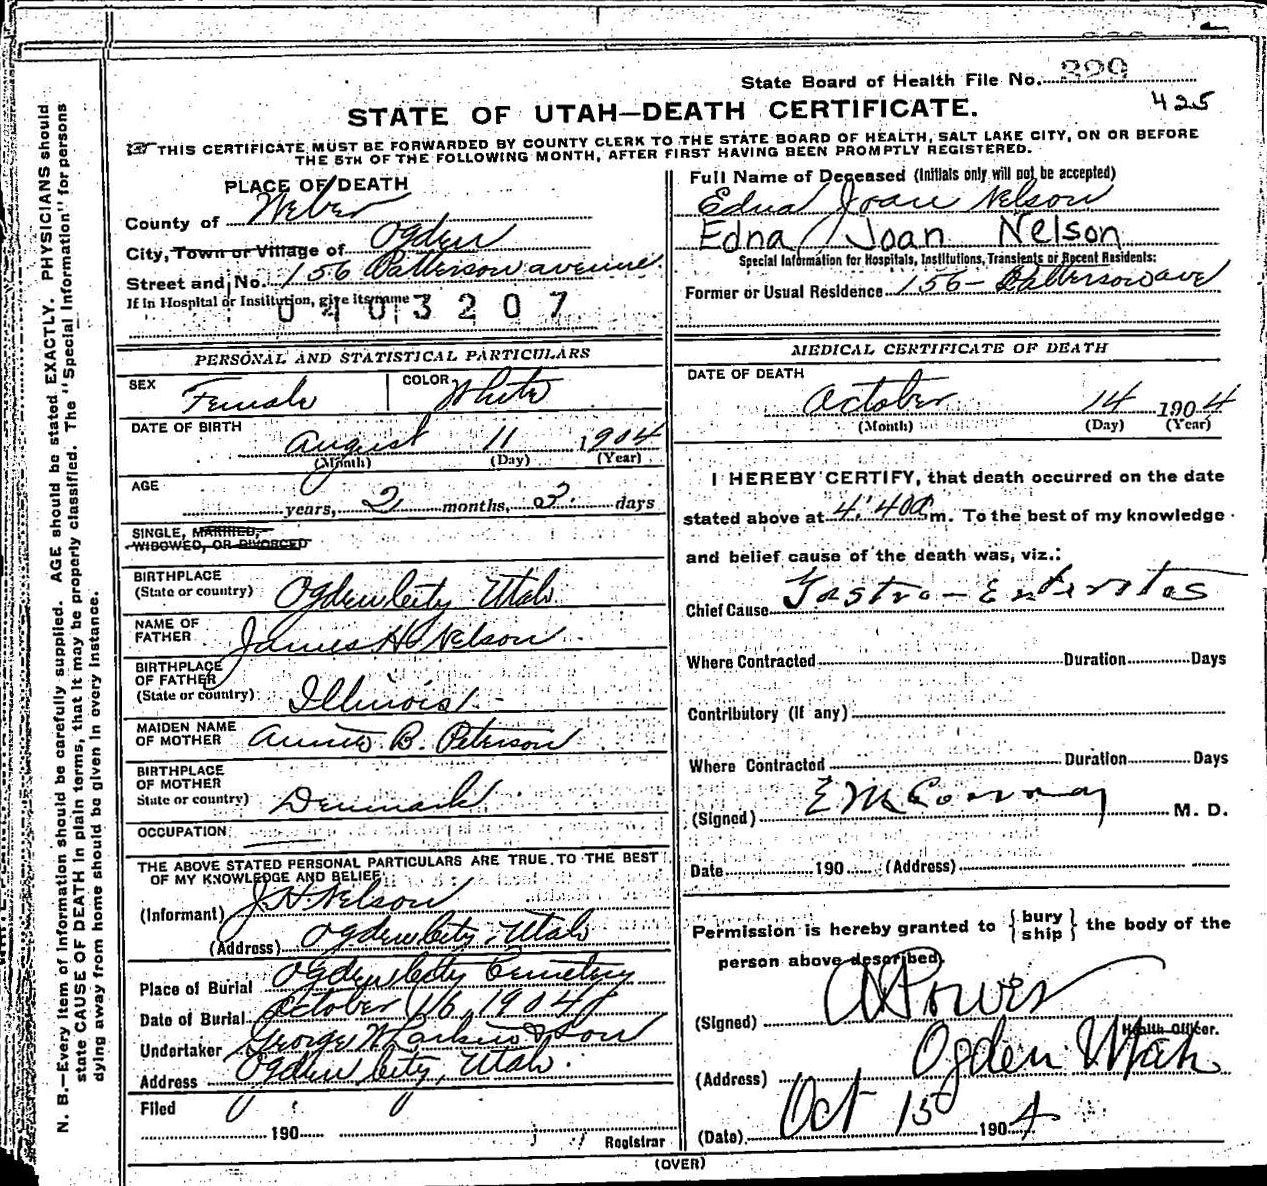 State Board of Health File No. 329
425
STATE OF UTAH—DEATH CERTIFICATE.
THIS CERTIFICATE MUST BE FORWARDED BY COUNTY CLERK TO THE STATE BOARD OF HEALTH, SALT LAKE CITY, ON OR BEFORE
THE 5TH OF THE FOLLOWING MONTH, AFTER FIRST HAVING BEEN PROMPTLY REGISTERED.
PLACE OF DEATH
County of Weber
City, Town or Village of Ogden
Street and No. 156 Patterson avenue.
If in Hospital or Institution, give its name
0403207
Full Name of Deceased (Initials only will not be accepted)
Edna Joan Nelson
Edna Joan Nelson
Special Information for Hospitals, Institutions, Transients or Recent Residents:
Former or Usual Residence 156- Patterson ave
PERSONAL AND STATISTICAL PARTICULARS
SEX Female COLOR White
DATE OF BIRTH
August 11 1904
(Month) (Day) (Year)
AGE
years, 2 months, 3 days
SINGLE, MARRIED,
WIDOWED, OR DIVORCED
BIRTHPLACE
(State or country) Ogden City Utah
NAME OF
FATHER James H. Nelson
BIRTHPLACE
OF FATHER
(State or country) Illinois
MAIDEN NAME
OF MOTHER Annie B. Peterson
BIRTHPLACE
OF MOTHER
State or country) Denmark
OCCUPATION
THE ABOVE STATED PERSONAL PARTICULARS ARE TRUE TO THE BEST
OF MY KNOWLEDGE AND BELIEF
(Informant) J H Nelson
(Address) Ogden City, Utah
Place of Burial Ogden City Cemetery
Date of Burial October 16, 1904
Undertaker George W Larkin & Son
Address Ogden City, Utah.
Filed
190 Registrar
MEDICAL CERTIFICATE OF DEATH
DATE OF DEATH
October 14 1904
(Month) (Day) (Year)
I HEREBY CERTIFY, that death occurred on the date
stated above at 4:40 a m. To the best of my knowledge
and belief cause of the death was, viz.:
Chief Cause Gastro-Enteritis
Where Contracted Duration Days
Contributory (if any)
Where Contracted Duration Days
(Signed) E M Conroy M. D.
Date 190 (Address)
Permission is hereby granted to { bury ship } the body of the
person above described.
(Signed) A Power
Health Officer.
(Address) Ogden Utah
(Date) Oct 15 1904
(OVER)
N. B.—Every item of information should be carefully supplied. AGE should be stated EXACTLY. PHYSICIANS should
state CAUSE OF DEATH in plain terms, that it may be properly classified. The "Special Information" for persons
dying away from home should be given in every instance.